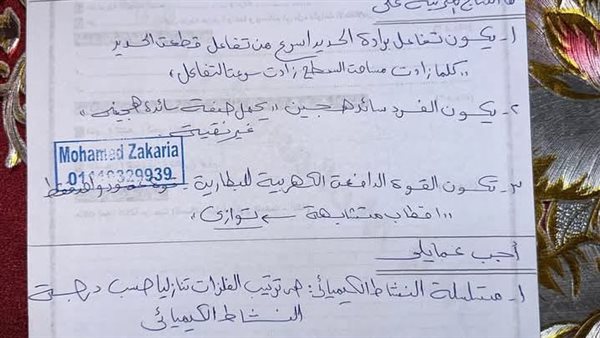 ١- يكون تفاعل برادة الحديد أسرع من تفاعل قطعة الحديد
"كلما زادت مساحة السطح زادت سرعة التفاعل"
٢- يكون الفرد سائد هجين "يحمل صفة سائدة هجينة"
غير نقية
Mohamed Zakaria
٣- تكون القوة الدافعة الكهربية للبطارية
"اقطاب متشابهة ← توازى"
أجب عما يلى
١- متسلسلة النشاط الكيميائى: هى ترتيب الفلزات تنازليا حسب درجة
النشاط الكيميائى